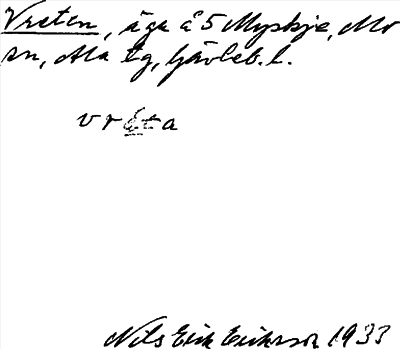 Vreten, äga å 5 Myskje, Mo
sn, Ala tg, Gävleb. l.
vreta
Nils Erik Eriksson 1933